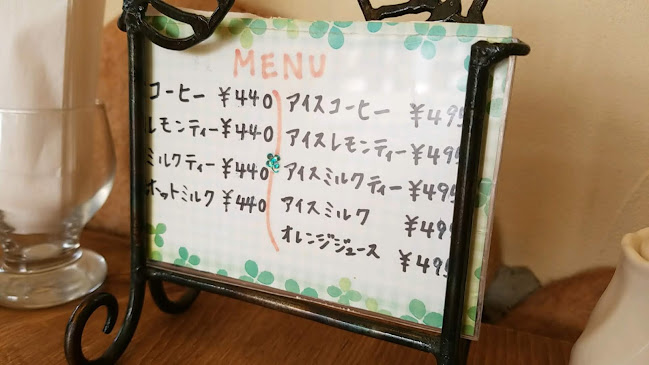 MENU
コーヒー ¥440
レモンティー ¥440
ミルクティー ¥440
ホットミルク ¥440
アイスコーヒー ¥495
アイスレモンティー ¥495
アイスミルクティー ¥495
アイスミルク ¥495
オレンジジュース ¥495